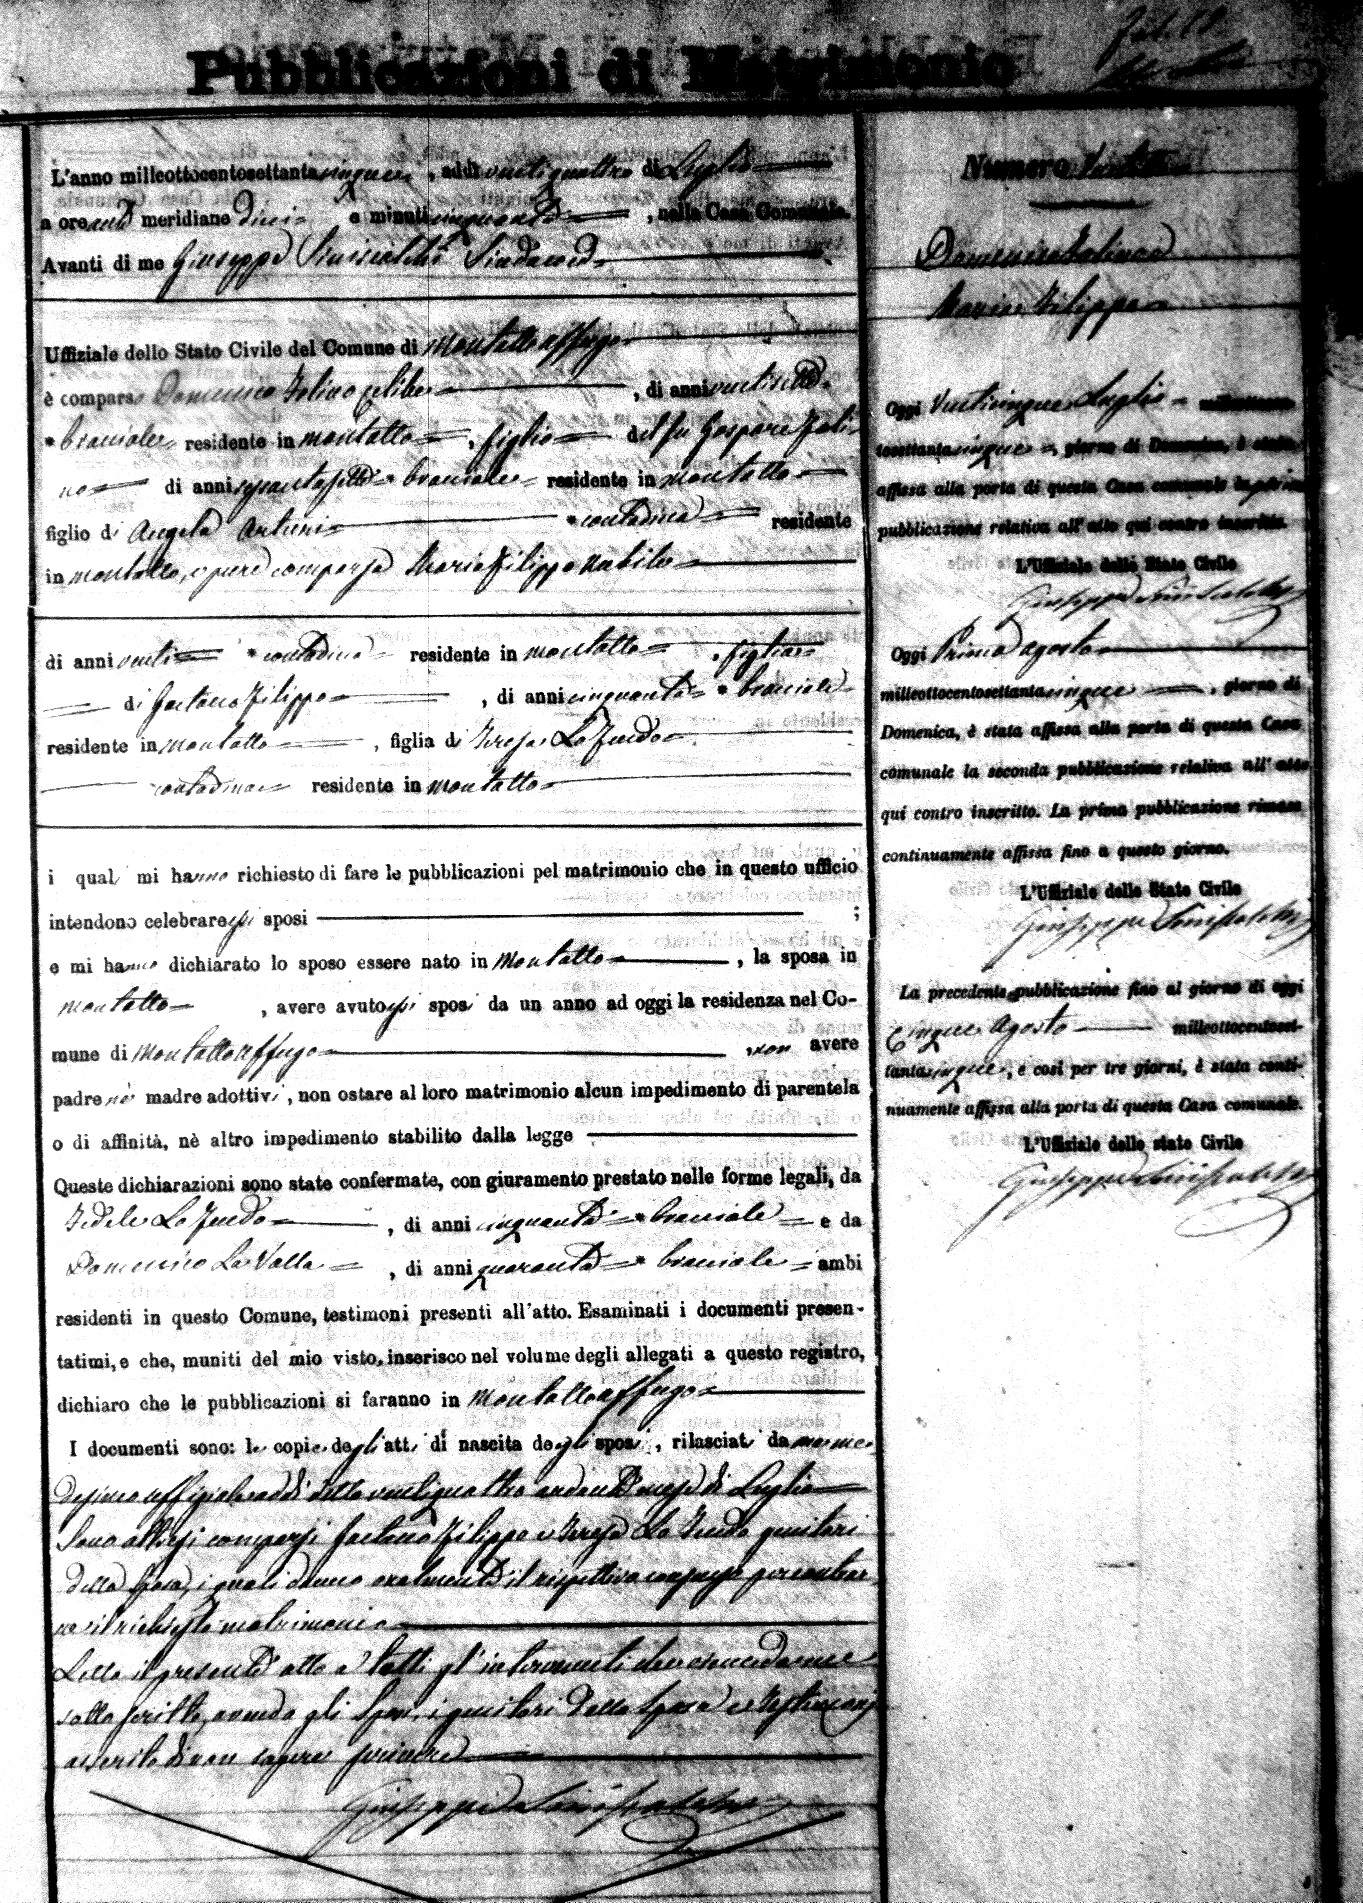 Pubblicazioni di Matrimonio
L'anno milleottocentosettantacinque, addì ventiquattro di Luglio
a ore anti meridiane dieci e minuti cinquanta, nella Casa Comunale.
Avanti di me Giuseppe Sindaco
Uffiziale dello Stato Civile del Comune di Montalto Uffugo
è comparso Domenico Folino celibe, di anni ventisette
bracciale residente in Montalto, figlio del fu Gaspare Foli-
no di anni bracciale residente in Montalto
figlio di Angela Arturi contadina residente
in Montalto, e pure comparsa Maria Filippo nubile
di anni venti contadina residente in Montalto figlia
di Gaetano Filippo, di anni cinquanta bracciale
residente in Montalto, figlia di Teresa Lo Feudo
contadina residente in Montalto
i quali mi hanno richiesto di fare le pubblicazioni pel matrimonio che in questo ufficio
intendono celebrare essi sposi ;
e mi hanno dichiarato lo sposo essere nato in Montalto, la sposa in
Montalto, avere avuto essi sposi da un anno ad oggi la residenza nel Co-
mune di Montalto Uffugo, non avere
padre nè madre adottivi, non ostare al loro matrimonio alcun impedimento di parentela
o di affinità, nè altro impedimento stabilito dalla legge
Queste dichiarazioni sono state confermate, con giuramento prestato nelle forme legali, da
Fedele Lo Feudo, di anni cinquanta bracciale e da
Domenico La Valle, di anni quaranta bracciale ambi
residenti in questo Comune, testimoni presenti all'atto. Esaminati i documenti presen-
tatimi, e che, muniti del mio visto, inserisco nel volume degli allegati a questo registro,
dichiaro che le pubblicazioni si faranno in Montalto Uffugo
I documenti sono: le copie degli atti di nascita degli sposi, rilasciati da me me-
desimo uffiziale addì detto ventiquattro andante mese di Luglio
Sono altresì comparsi Gaetano Filippo e Teresa Lo Feudo genitori
della sposa, i quali danno oralmente il rispettivo consenso per contrar-
re il richiesto matrimonio
Letto il presente atto a tutti gl'intervenuti
sottoscritto, avendo gli sposi, i genitori della sposa e testimonj
asserito di non sapere scrivere
Giuseppe
Numero
Domenico Folino e
Maria Filippo
Oggi Venticinque Luglio milleottocen-
tosettantacinque, giorno di Domenica, è stata
affissa alla porta di questa Casa comunale la prima
pubblicazione relativa all'atto qui contro inscritto.
L'Uffiziale dello Stato Civile
Giuseppe
Oggi Primo Agosto
milleottocentosettantacinque, giorno di
Domenica, è stata affissa alla porta di questa Casa
comunale la seconda pubblicazione relativa all'atto
qui contro inscritto. La prima pubblicazione rimase
continuamente affissa fino a questo giorno.
L'Uffiziale dello Stato Civile
Giuseppe
La precedente pubblicazione fino al giorno di oggi
Cinque Agosto milleottocentoset-
tantacinque, e così per tre giorni, è stata conti-
nuamente affissa alla porta di questa Casa comunale.
L'Uffiziale dello stato Civile
Giuseppe